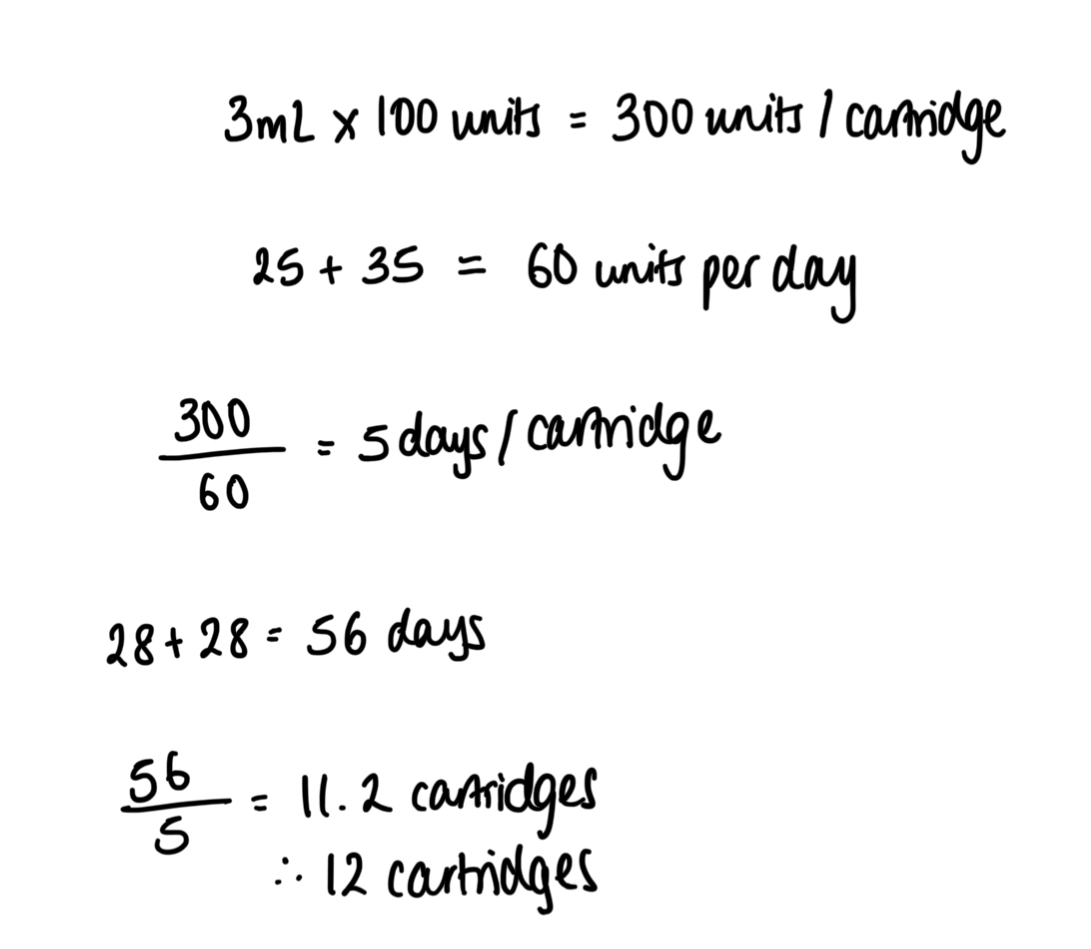 3mL x 100 units = 300 units / cartridge
25 + 35 = 60 units per day
300
60
= 5 days / cartridge
28 + 28 = 56 days
56
5
= 11.2 cartridges
∴ 12 cartridges